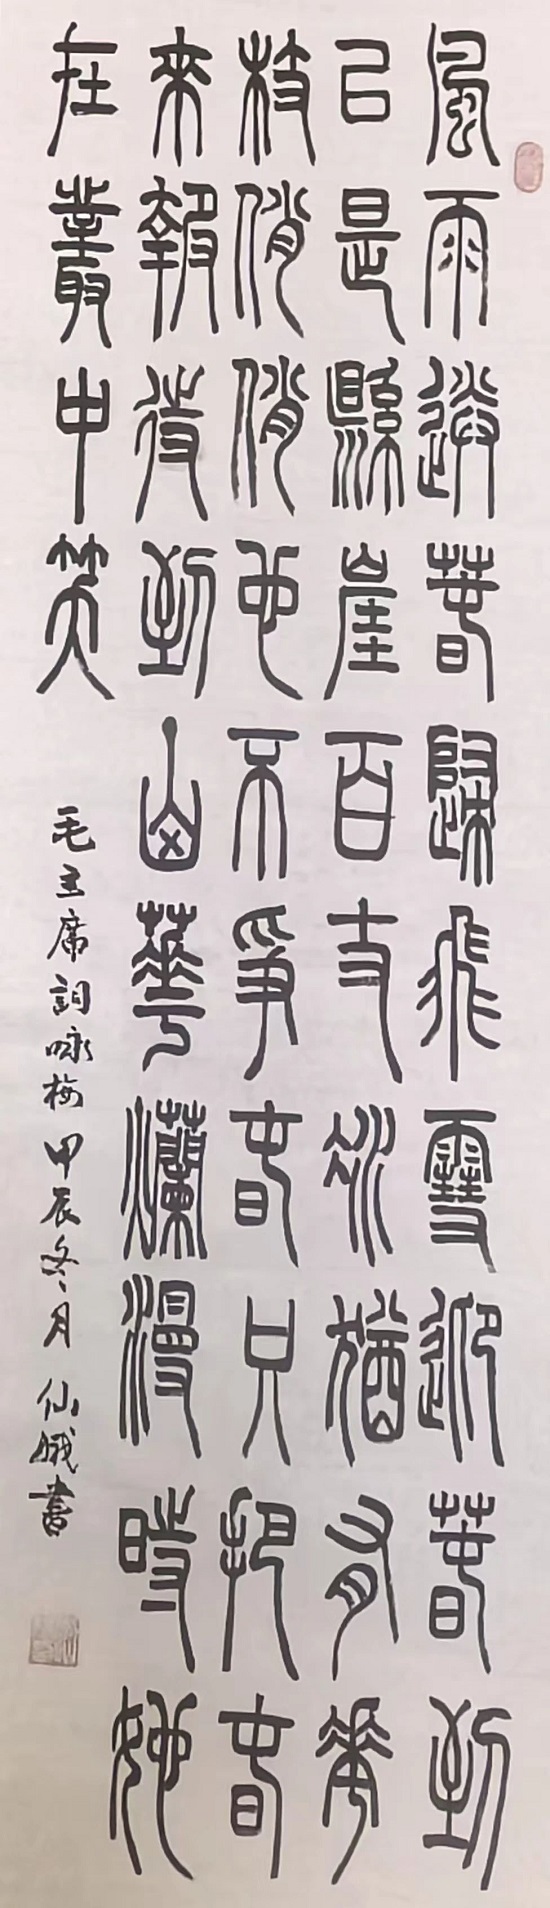 風雨送春歸飛雪迎春到
已是縣崖百丈冰猶有花
枝俏俏也不爭春只把春
來報待到山華爛漫時她
在叢中笑
毛主席詞咏梅 甲辰冬月 仙娥書